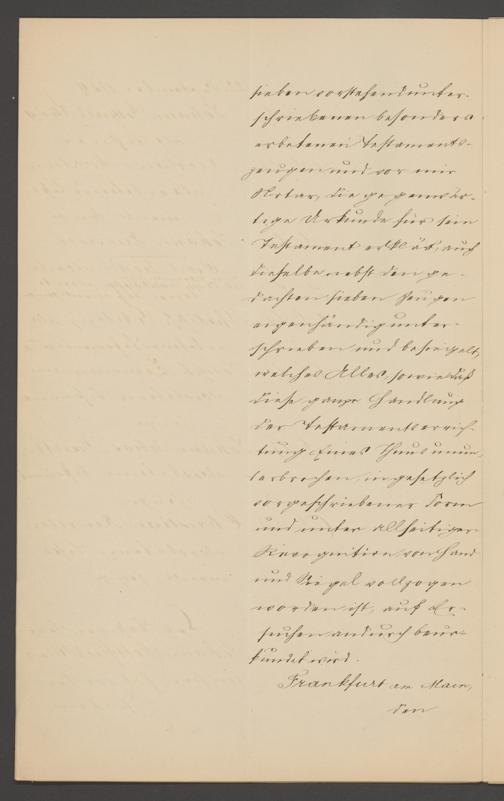 sieben vorstehend unter-
schriebenen besonders
erbetenen Testaments-
zeugen und vor mir
Notar, die gegenwär-
tige Urkunde für sein
Testament erklärt, auch
dieselbe nebst den ge-
dachten sieben Zeugen
eigenhändig unter-
schrieben und besiegelt,
welches Alles, sowie daß
diese ganze Handlung
der Testamentserrich-
tung Eines Thuns unun-
terbrochen, in gesetzlich
vorgeschriebener Form
und unter allseitiger
Recognition von Hand
und Siegel vollzogen
worden ist, auf Er-
suchen andurch beur-
kundet wird.
Frankfurt am Main,
den